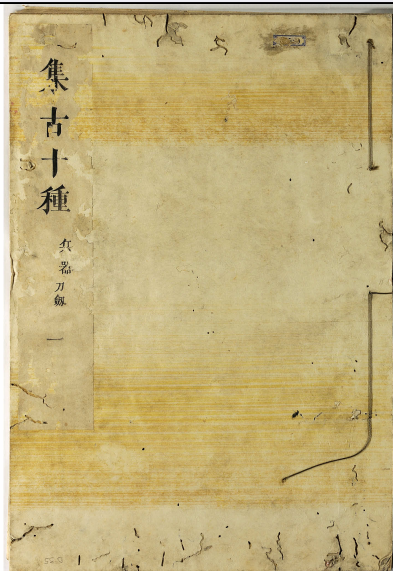 集古十種
兵器刀劔 一